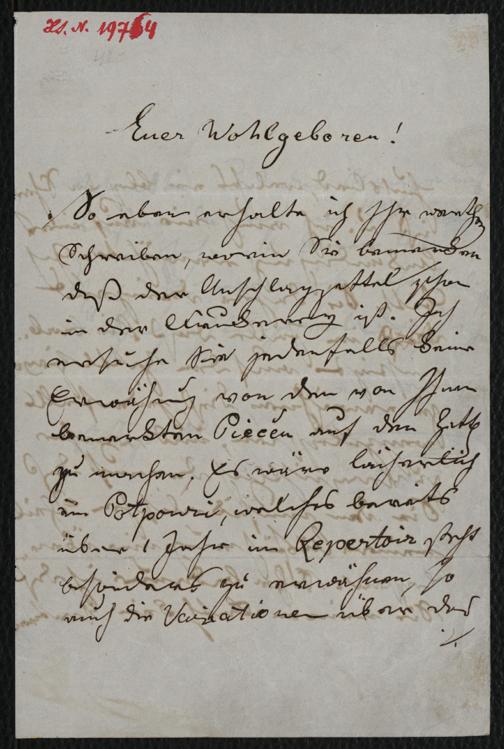 Hs. N. 19764
Euer Wohlgeboren!
So eben erhalte ich Ihr werthes
Schreiben, worin Sie bemerken
daß der Anschlagzettel schon
in der ist. Ich
ersuche Sie jedenfalls keine
Erwähnung von den von Ihnen
bemerkten Piecen auf den Zettel
zu machen. Es wäre lächerlich
ein Potpouri, welches bereits
über 1 Jahr im Repertoir steht
besonders zu erwähnen, so
auch die Variationen über das
./.